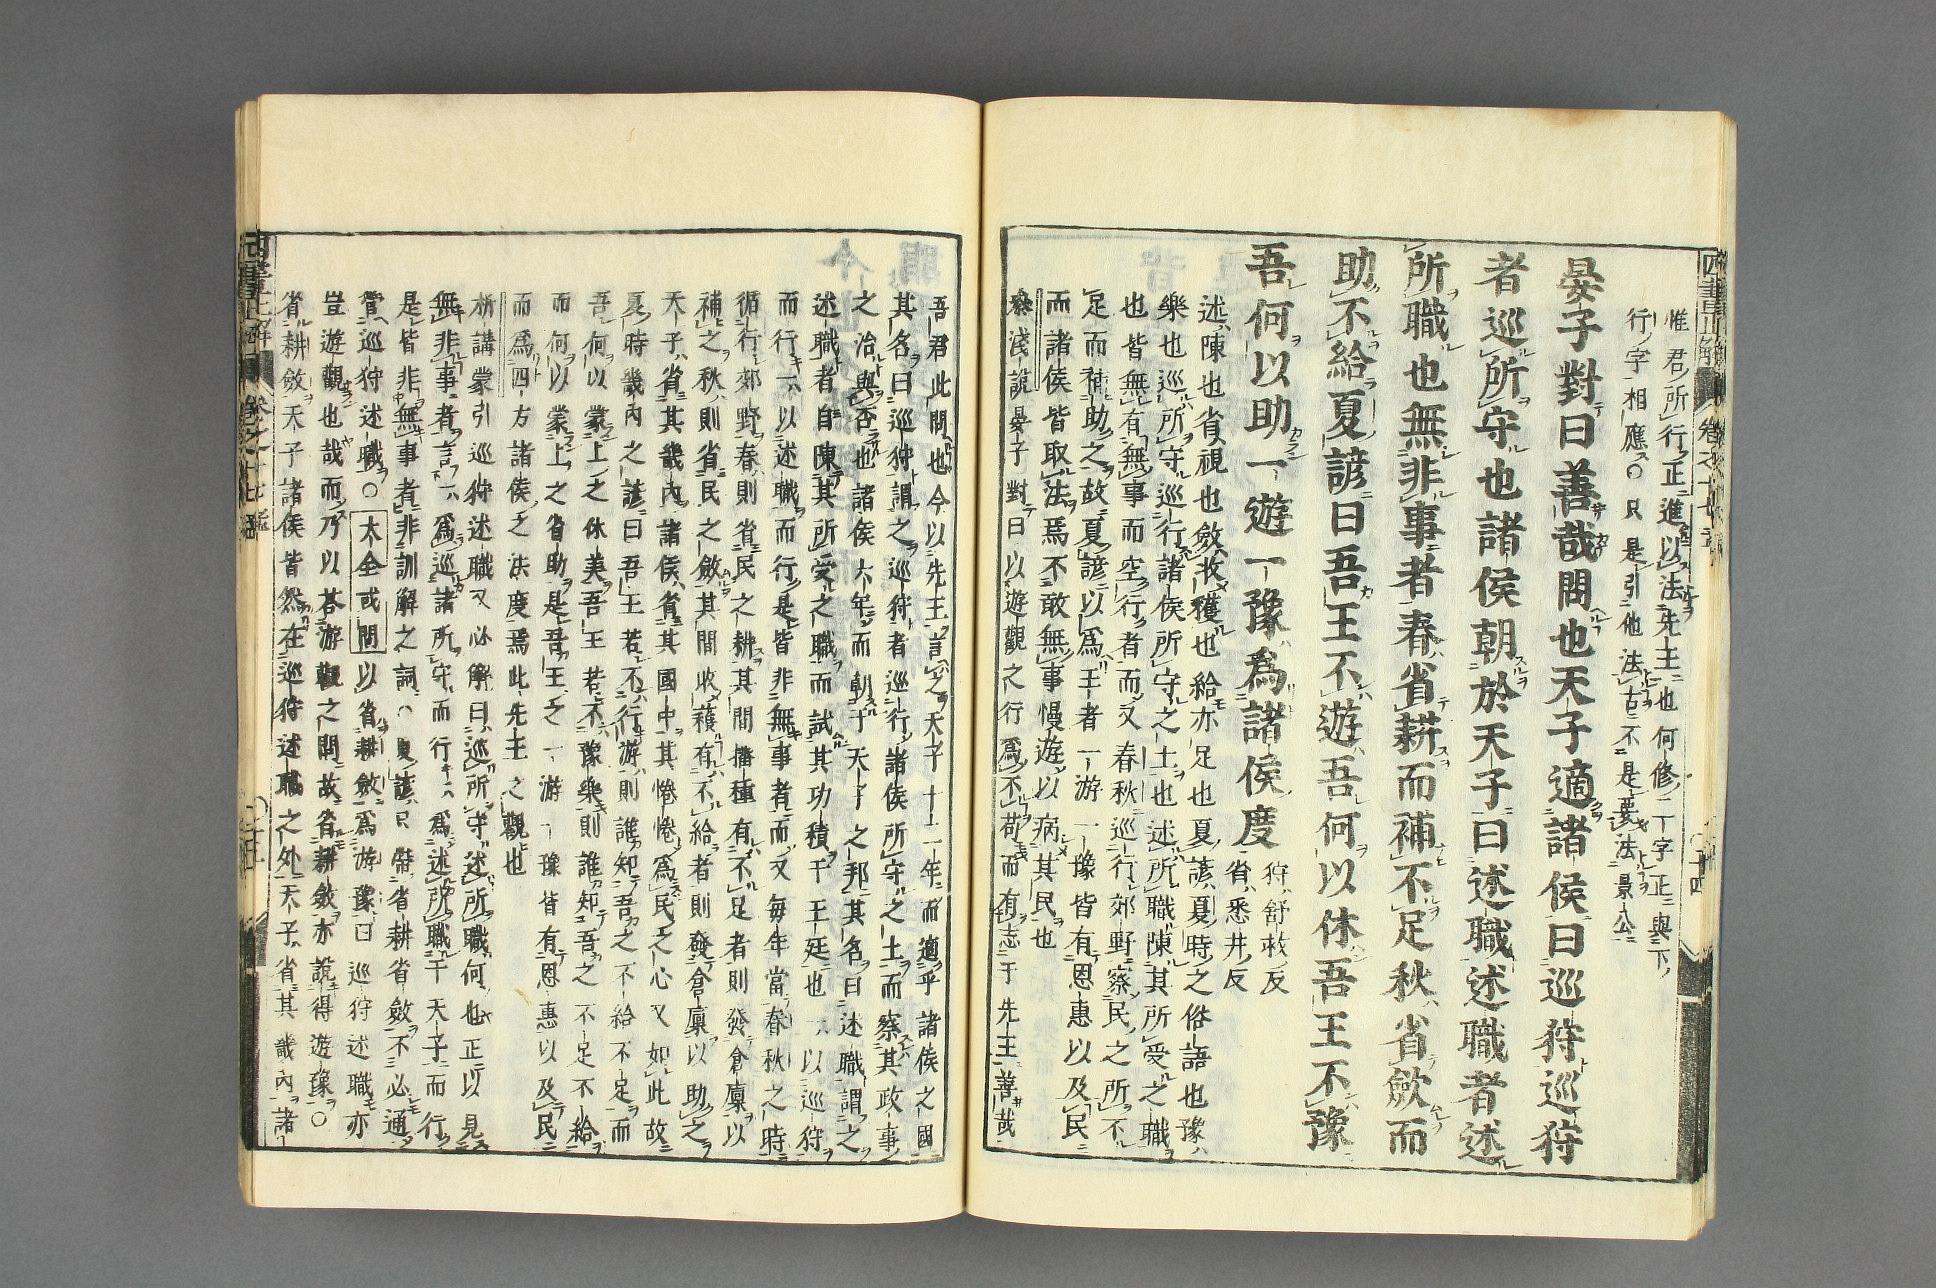 惟君所行正進以法先王也何修二字正與下
行字相應○只是引他法古不是要法景公
晏子對曰善哉問也天子適諸侯曰巡狩巡狩
者巡所守也諸侯朝於天子曰述職述職者述
所職也無非事者春省耕而補不足秋省斂而
助不給夏諺曰吾王不遊吾何以休吾王不豫
吾何以助一遊一豫為諸侯度
狩舒救反
省悉井反
述陳也省視也斂收穫也給亦足也夏諺夏時之俗語也豫
樂也巡所守巡行諸侯所守之土也述所職陳其所受之職
也皆無有無事而空行者而又春秋巡行郊野察民之所不
足而補助之故夏諺以為王者一游一豫皆有恩惠以及民
而諸侯皆取法焉不敢無事慢遊以病其民也
淺說晏子對曰以遊觀之行為不苟而有志于先王善哉
吾君此問也今以先王言之天子十二年而適乎諸侯之國
其名曰巡狩謂之巡狩者巡行諸侯所守之土而察其政事
之治與否也諸侯六年而朝于天子之邦其名曰述職謂之
述職者自陳其所受之職而試其功積于王廷也以巡狩
而行以述職而行是皆非無事者而又每年當春秋之時
循行郊野春則省民之耕其間播種有不足者則發倉廩以
補之秋則省民之斂其間收穫有不給者則發倉廩以助之
天子省其畿內諸侯省其國中其惓惓為民之心又如此故
夏時畿內之諺曰吾王若不行游則誰知吾之不給不足而
吾何以蒙上之休美吾王若不豫樂則誰知吾之不足不給
而何以蒙上之省助是吾王之一游一豫皆有恩以及民
而為四方諸侯之法度焉此先王之觀也
析講蒙引巡狩述職又必解曰巡所守述所職何也正以見
無非事者言為巡諸所守而行為述所職于天子而行
是皆非無事者非訓解之詞夏諺只帶省耕省斂不必通
管巡狩述職○大全或問以省耕斂為游豫曰巡狩述職亦
豈遊觀也哉而乃以荅游觀之問故省耕斂亦說得遊豫○
省耕斂天子諸侯皆然在巡狩述職之外天子省其畿內諸